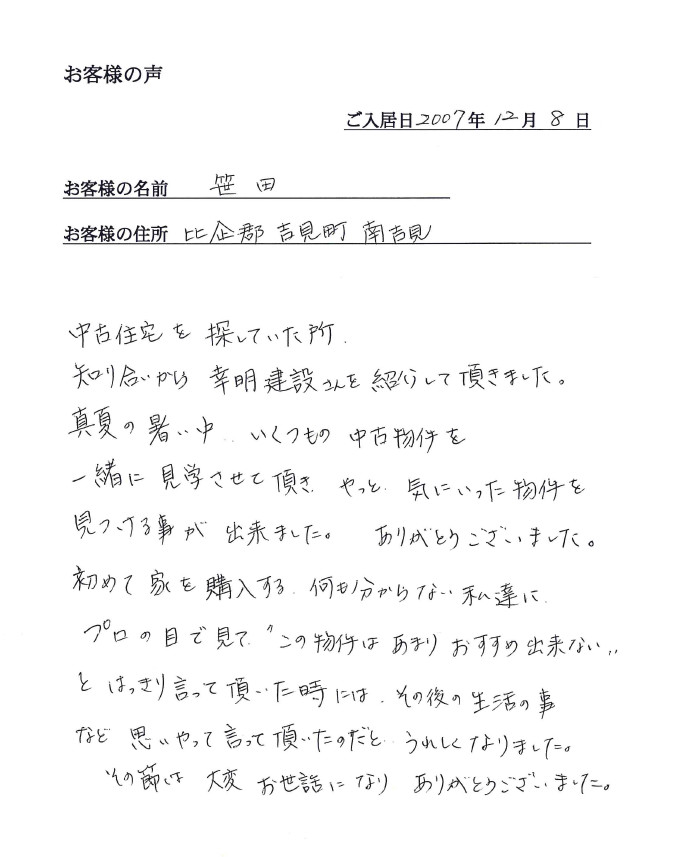 お客様の声
ご入居日2007年 12月 8日
お客様の名前 笹田
お客様の住所 比企郡 吉見町 南吉見
中古住宅を探していた所、
知り合いから 幸明建設さんを紹介して頂きました。
真夏の暑い中、いくつもの 中古物件を
一緒に見学させて頂き、やっと、気にいった物件を
見つける事が 出来ました。 ありがとうございました。
初めて家を購入する、何も分からない私達に、
プロの目で見て、〝この物件は あまり おすすめ出来ない〟
と はっきり言って頂いた時には、その後の生活の事
など 思いやって言って頂いたのだと、うれしくなりました。
その節は 大変 お世話になり ありがとうございました。